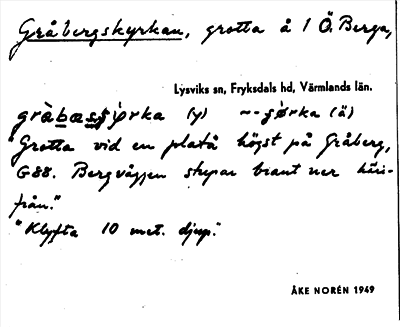 Gråbergskyrkan, grotta å 1 Ö. Berga,
Lysviks sn, Fryksdals hd, Värmlands län.
(y) (ä)
"Grotta vid en platå högst på Gråberg,
G88. Bergväggen stupar brant ner häri-
från."
"Klyfta 10 met. djup."
ÅKE NORÉN 1949